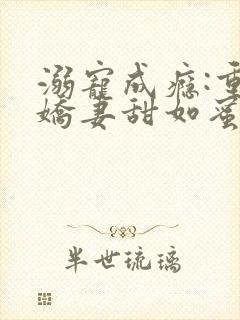 溺寵成癮:重
嬌妻甜如蜜
半世琉璃